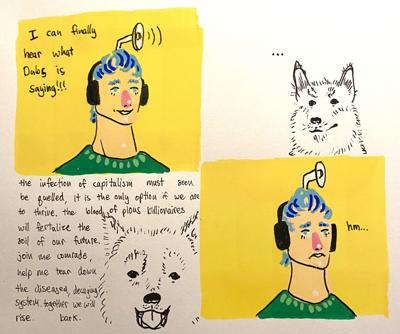 I can finally
hear what
Dubs is
saying!!!
...
the infection of capitalism must soon
be quelled, it is the only option if we are
to thrive. the blood of pious billionaires
will fertalize the
soil of our future.
join me comrade,
help me tear down
the diseased, decaying
system. together we will
rise. bark.
hm...